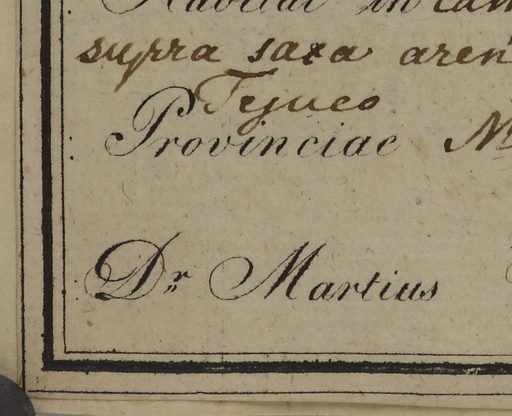 Habitat in cam
supra saxa aren
Tejuco
Provinciae M
Dr Martius